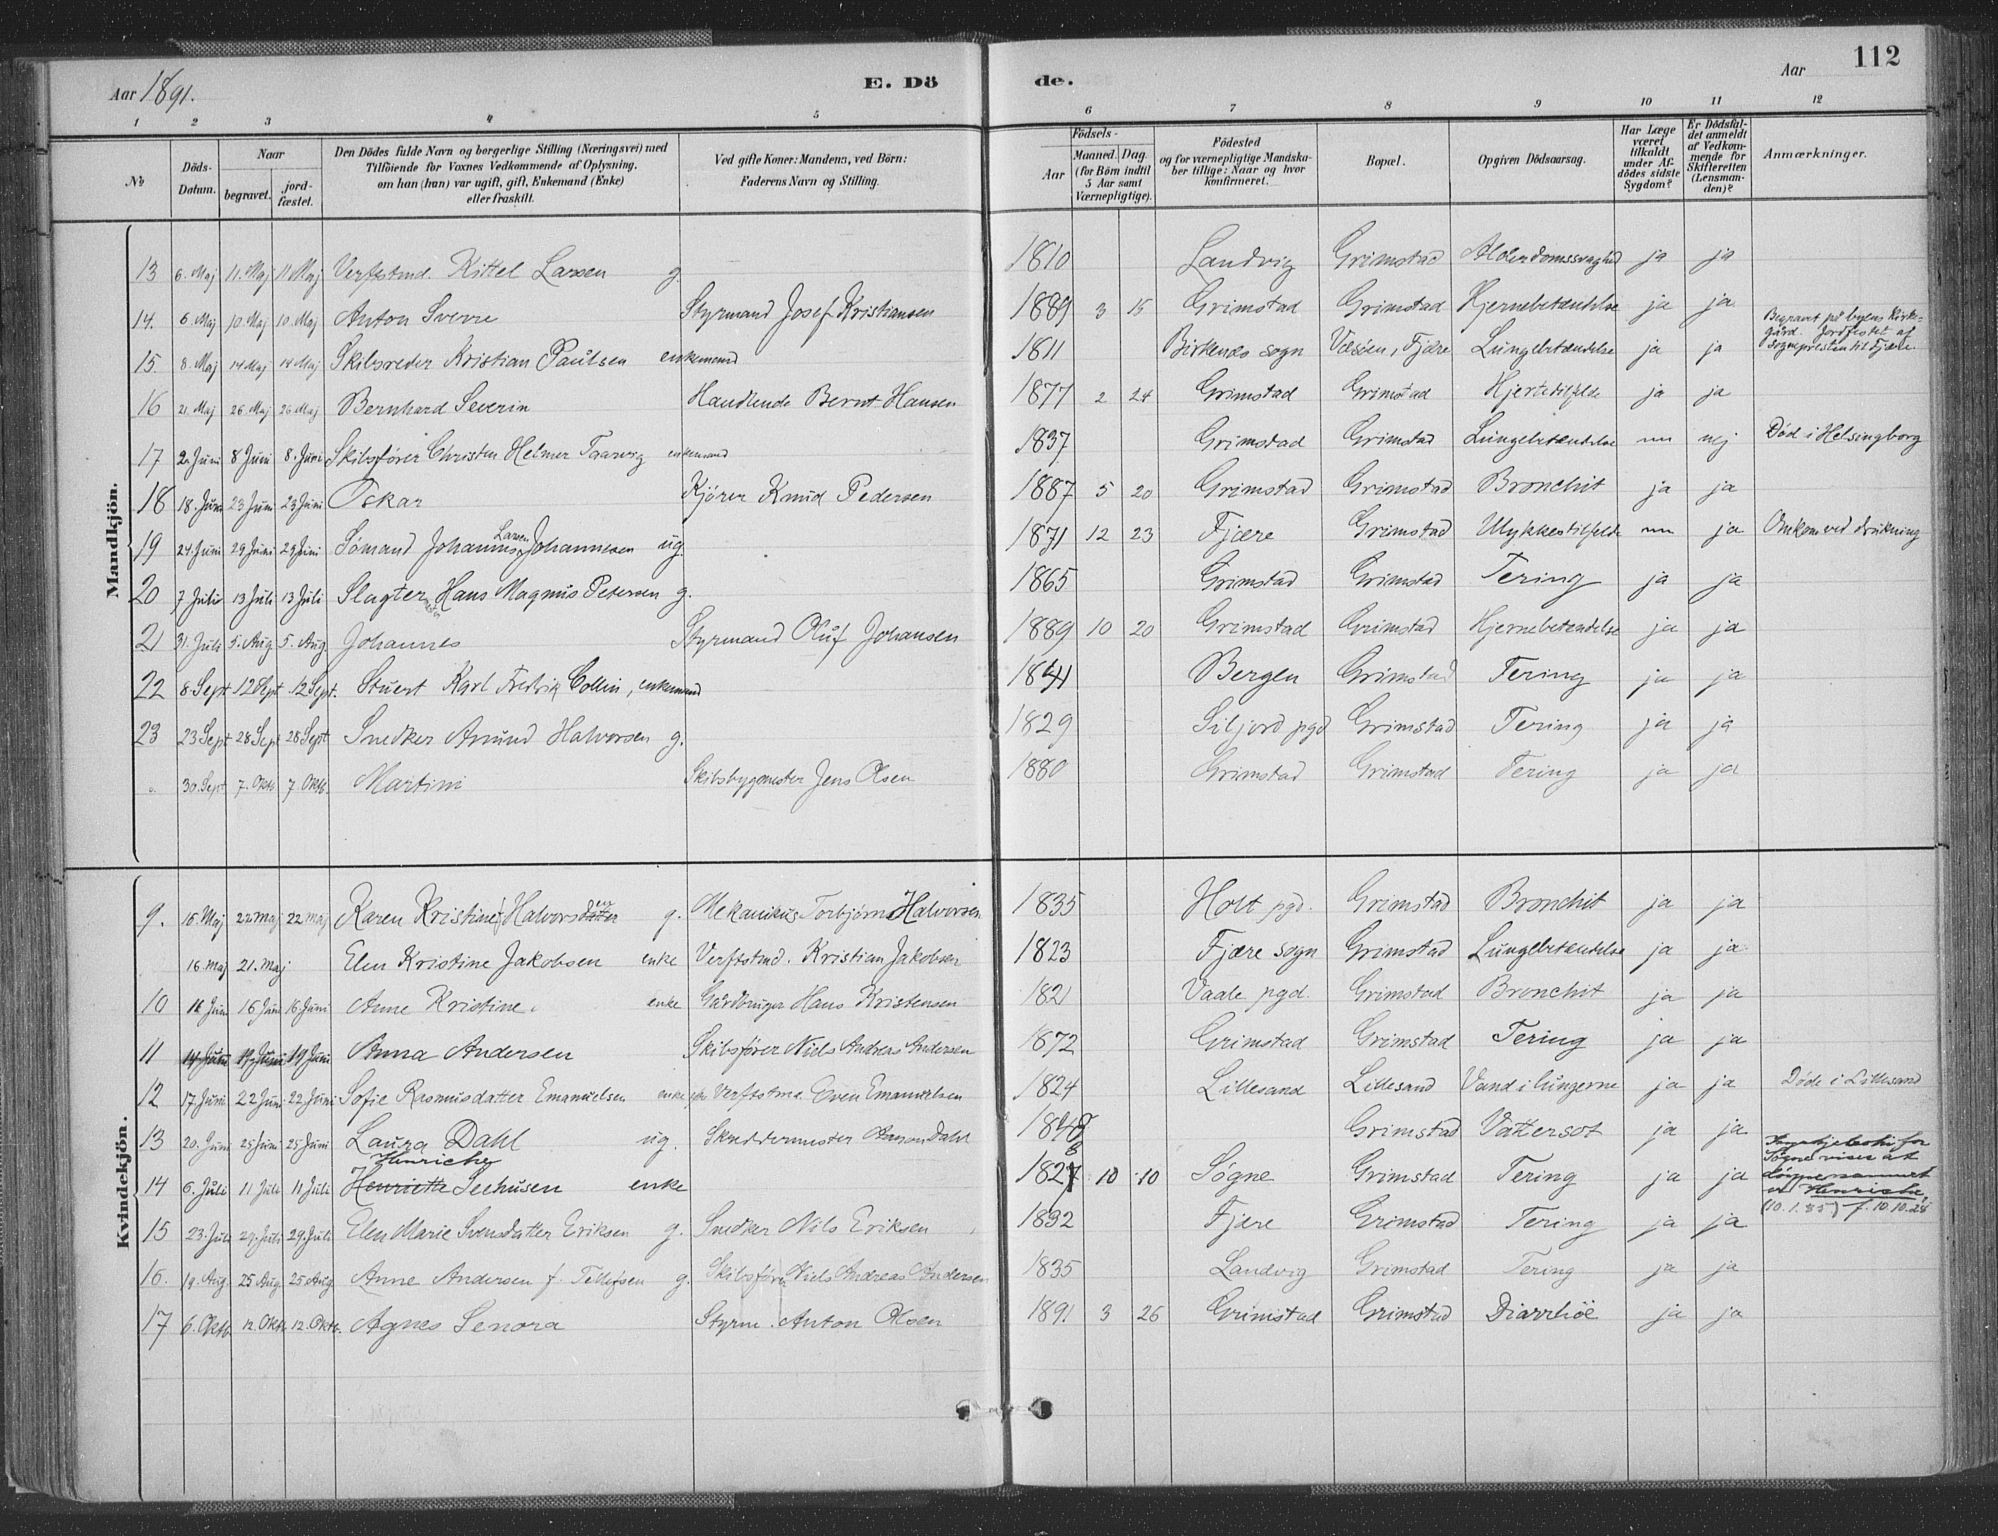 Aar 1891.
E. Dö
de.
Aar
112
1 2 3 4 5 6 7 8 9 10 11 12
№
Döds-Datum.
Naar
begravet.
jord-fæstet.
Den Dödes fulde Navn og borgerlige Stilling (Næringsvei) med
Tilföiende for Voxnes Vedkommende af Oplysning,
om han (hun) var ugift, gift, Enkemand (Enke)
eller fraskilt.
Ved gifte Koner: Mandens, ved Börn:
Faderens Navn og Stilling.
Födsels-
Aar
Maaned. Dag.
(for Börn indtil
5 Aar samt
Værnepligtige).
Födested
og for værnepligtige Mandska-
ber tillige: Naar og hvor
konfirmeret.
Bopæl.
Opgiven Dödsaarsag.
Har Læge
været
tilkaldt
under Af-
dödes sidste
Sygdom?
Er Dödsfal-
det anmeldt
af Vedkom-
mende for
Skifteretten
(Lensman-
den)?
Anmærkninger.
Mandkjön.
13 6. Maj 11. Maj 11 Maj Verftstmd. Kittel Larsen g. 1810 Landvig Grimstad Alderdomssvaghed ja ja
14. 6 Maj 10 Maj 10 Maj Anton Sverre Styrmand Josef Kristiansen 1889 3 15 Grimstad Grimstad Hjernebetændelse ja ja
15. 8 Maj 14 Maj 14 Maj Skibsreder Kristian Paulsen enkemand 1811 Birkenes sogn Fjære Lungebetændelse ja ja Begravet på byens kirke-
gård. Jordfestet af
sognepresten til Fjære
16 21 Maj 26 Maj 26 Maj Bernhard Severin Handlende Bernt Hansen 1877 2 24 Grimstad Grimstad Hjertetilfelde ja ja
17 2. Juni 8 Juni 8. Juni Skibsfører Christen Helmer enkemand 1837 Grimstad Grimstad Lungebetændelse nej Död i Helsingborg
18 18. Juni 23 Juni 23 Juni Oskar Kjører Knud Pedersen 1887 5 20 Grimstad Grimstad Bronchit ja ja
19 24. Juni 29 Juni 29 Juni Sømand Johannes Larsen Johannesen ug. 1871 12 23 Fjære Grimstad Ulykkestilfelde ja Omkom ved drukning
20 7 Juli 13 Juli 13 Juli Slagter Hans Magnus Petersen g. 1865 Grimstad Grimstad Tering ja ja
21 31. Juli 5. Aug 5. Aug Johannes Styrmand Oluf Johansen 1889 10 20 Grimstad Grimstad Hjernebetændelse ja ja
22 8 Sept 12 Sept 12 Sept. Stuert Karl Fredrik Collin, enkemand Bergen Grimstad Tering ja ja
23 23 Sept 28 Sept 28 Sept Snedker Amund Halvorsen g. 1829 Siljord pgd Grimstad Tering ja ja
30. Sept 7. Oktb 7 Oktb. Martin Skibsbygmester Jens Olsen 1880 Grimstad Grimstad Tering ja ja
Kvindekjön.
9. 15. Maj 22 Maj 22 Maj Karen Kristine Halvorsdatter g. Mekanikus Torbjørn Halvorsen 1835 Holt pgd. Grimstad Bronchit ja ja
16 maj 21. maj Elen Kristine Jakobsen enke Verftstmd. Kristian Jakobsen 1823 Fjære sogn Grimstad Lungebetændelse ja ja
10 16 Juni 16 Juni Anne Kristine enke Gårdbruger Hans Kristensen 1821 Vaale pgd. Grimstad Bronchit ja ja
11 14 Juni 19 Juni 19 Juni Anna Andersen Skibsfører Niels Andreas Andersen 1872 Grimstad Grimstad Tering ja ja
12 17 Juni 22 Juni 22 Juni Sofie Rasmusdatter Emanuelsen enke Verftstmd. Even Emanuelsen 1824 Lillesand Lillesand Vand i lungerne ja ja Døde i Lillesand
13 20. Juni 25 Juni 25 Juni Laura Dahl ug. Skreddermester Dahl Grimstad Vattersot ja ja
14 6. Juli 11 Juli 11 Juli Henriette Henriche Seehusen enke 1827 8 10 10 Søgne Grimstad Tering ja ja for
Søgne viser at
døpenavnet
er Henriche,
(10.1.85) f. 10.10.28
15 23. Juli 29. Juli 29. Juli Elen Marie Svensdatter Eriksen g. Snedker Nils Eriksen 1832 Fjære Grimstad Tering ja ja
16. 19 Aug 25 Aug 25 Aug Anne Andersen f. Tellefsen g. Skibsfører Niels Andreas Andersen 1835 Landvig Grimstad Tering ja ja
17 6. Oktb 12. Oktb 12. Oktb. Agnes Senora Styrm. Anton Olsen 1891 3 26 Grimstad Grimstad Diarrhöe ja ja